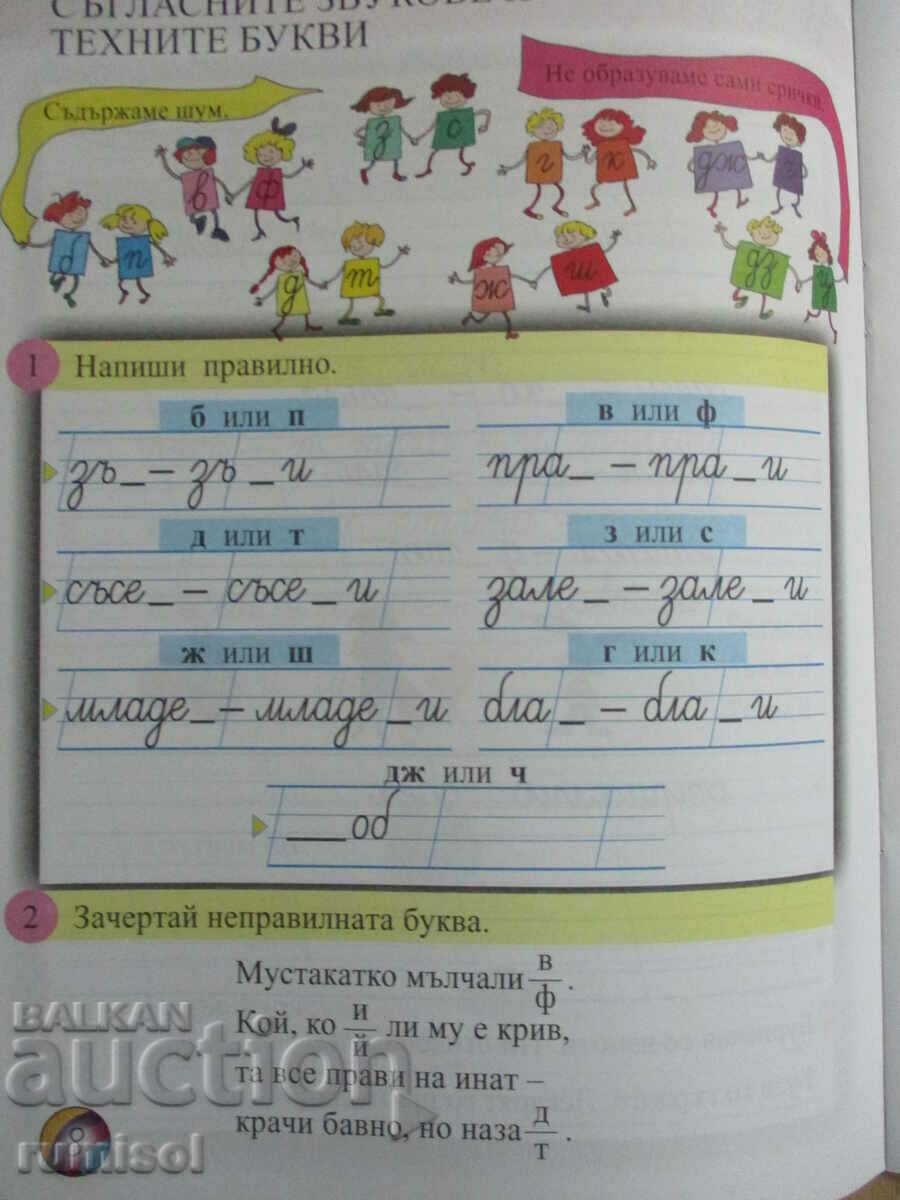 ТЕХНИТЕ БУКВИ
Съдържаме шум.
Не образуваме сами срички.
б п в ф д т з с ж ш г к дж ч дз ц
1 Напиши правилно.
б или п
зъ_ – зъ_и
в или ф
пра_ – пра_и
д или т
съсе_ – съсе_и
з или с
зале_ – зале_и
ж или ш
младе_ – младе_и
г или к
бла_ – бла_и
дж или ч
___об
2 Зачертай неправилната буква.
Мустакатко мълчали в/ф.
Кой, ко и/й ли му е крив,
та все прави на инат –
крачи бавно, но наза д/т.
8
BALKAN
auction
rumisol